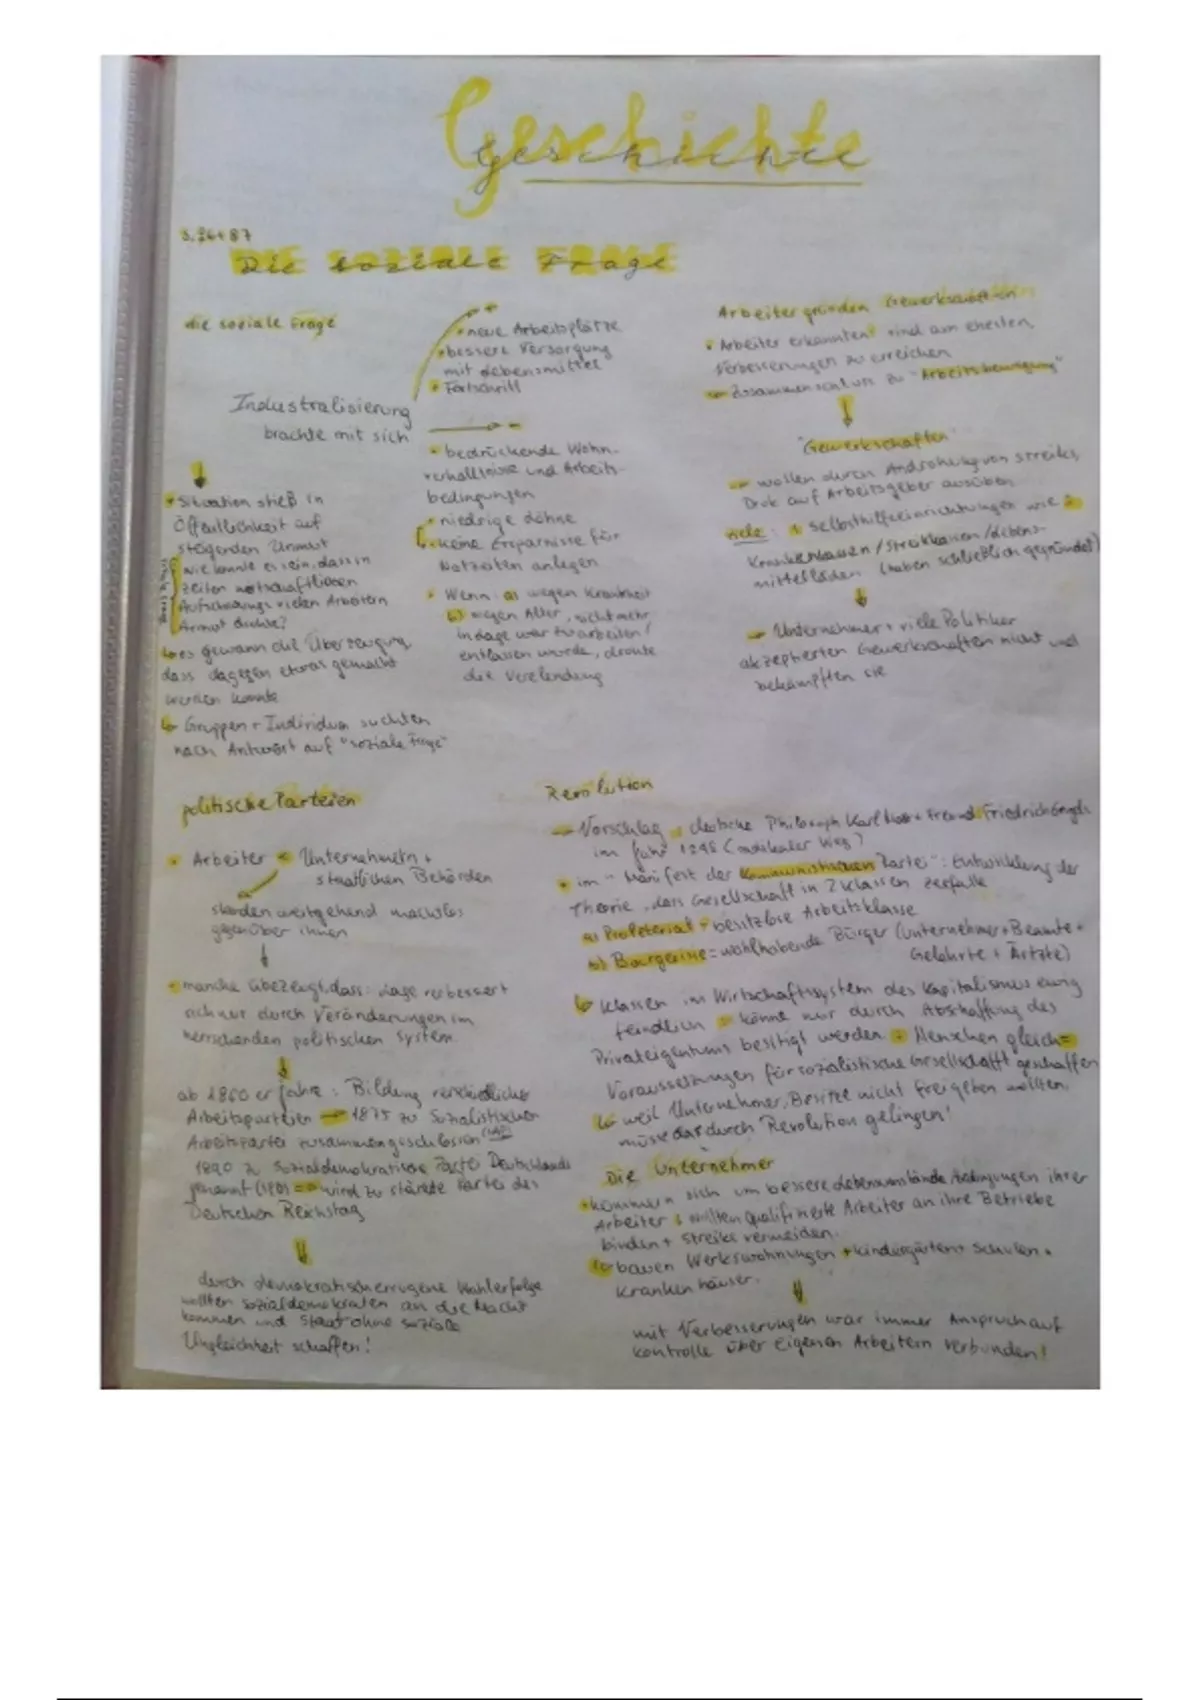 Geschichte
S. 26+87
Die soziale Frage
die soziale Frage
Industralisierung
brachte mit sich
• neue Arbeitsplätze
• bessere Versorgung
mit Lebensmittel
• Fortschritt
• bedrückende Wohn-
verhältnisse und Arbeits-
bedingungen
• niedrige Löhne
• keine Ersparnisse für
Notzeiten anlegen
• Wenn a) wegen Krankheit
b) wegen Alter, nicht mehr
in Lage war zu arbeiten/
entlassen wurde, drohte
die Verelendung
• Situation stieß in
Öffentlichkeit auf
steigenden Unmut
wie konnte es sein, dass in
Zeiten wirtschaftlichen
Aufschwungs vielen Arbeitern
Armut drohte?
↳ es gewann die Überzeugung,
dass dagegen etwas gemacht
werden konnte
↳ Gruppen + Individum suchten
nach Antwort auf "soziale Frage"
Arbeiter gründen Gewerkschaften
• Arbeiter erkannten: sind am ehesten,
Verbesserungen zu erreichen
→ Zusammenschluss zu "Arbeitsbewegung"
"Gewerkschaften"
→ wollen durch Androhung von Streiks,
Druk auf Arbeitsgeber ausüben
viele: Selbsthilfeeinrichtungen wie:
Krankenkassen/Streikkassen/Lebens-
mittelläden (haben schließlich gegründet)
→ Unternehmer + viele Politiker
akzeptierten Gewerkschaften nicht und
bekämpften sie
politische Parteien
• Arbeiter Unternehmern +
staatlichen Behörden
standen weitgehend machtlos
gegenüber ihnen
• manche übezeugt, dass: Lage verbessert
sich nur durch Veränderungen im
herrschenden politischen System.
ab 1860 er Jahre: Bildung
Arbeitsparteien → 1875 zu Sozialistischen
Arbeitspartei zusammengeschlossen (SAP)
1890 zu Sozialdemokratische Partei Deutschlands
genannt → wird zu stärkste Partei des
Deutschen Reichstag
durch demokratisch errugene Wahlerfolge
wollten Sozialdemokraten an die Macht
kommen und Staat ohne soziale
Ungleichheit schaffen!
Revolution
→ Vorschlag: deutsche Philosoph Karl Marx + Freund Friedrich Engels
im Jahr (radikaler Weg)
• im "Manifest der Kommunistischen Partei": Entwicklung der
Theorie, dass Gesellschaft in 2 Klassen zerfalle
a) Proleteriat = besitzlose Arbeitsklasse
b) Bourgeoisie = wohlhabende Bürger (Unternehmer + Beamte +
Gelehrte + Ärtzte)
↳ Klassen im Wirtschaftssystem des Kapitalismus ewig
feindlich: könne nur durch Abschaffung des
Privateigentums besitigt werden: Menschen gleich =
Voraussetzungen für sozialistische Gesellschafft geschaffen
↳ weil Unternehmer, Besitze nicht freigeben wollten,
müsse das durch Revolution gelingen!
Die Unternehmer
• kümmern sich um bessere Lebensumstände/Bedingungen ihrer
Arbeiter: wollten Qualifizierte Arbeiter an ihre Betriebe
binden + Streiks vermeiden.
↳ bauen Werkswohnungen + Kindergärten + Schulen +
Krankenhäuser.
mit Verbesserungen war immer Anspruch auf
Kontrolle über eigenen Arbeitern verbunden!